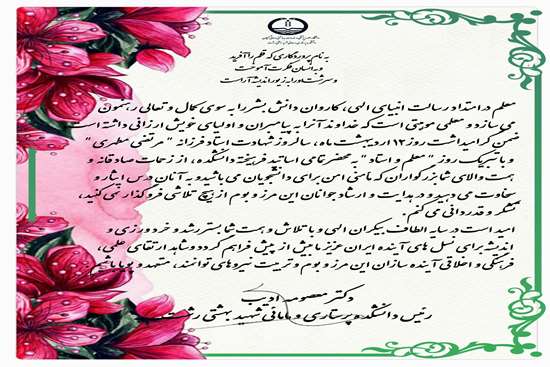 به نام پروردگاری که قلم را آفرید
و به انسان فکرت آموخت
و سرشتش را به زیور اندیشه آراست
معلم در امتداد رسالت انبیای الهی، کاروان دانش بشر را به سوی کمال و تعالی رهنمون
می سازد و معلمی موهبتی است که خداوند آنرا به پیامبران و اولیای خویش ارزانی داشته است
ضمن گرامیداشت روز ۱۲ اردیبهشت ماه، سالروز شهادت استاد فرزانه " مرتضی مطهری "
و با تبریک روز " معلم و استاد " به محضر تمامی اساتید فرهیخته دانشکده، از زحمات صادقانه و
همت والای شما بزرگواران که مامنی امن برای دانشجویان می باشید و به آنان درس ایثار و
سخاوت می دهید و در هدایت و ارشاد جوانان این مرز و بوم از هیچ تلاشی فروگذار نمی کنید،
تشکر و قدردانی می کنم.
امید است در سایه الطاف بیکران الهی و با تلاش و همت شما بستر رشد و خردورزی و
اندیشه برای نسل های آینده ایران عزیز ما بیش از پیش فراهم گردد و شاهد ارتقای علمی،
فرهنگی و اخلاقی آینده سازان این مرز و بوم و تربیت نیروهای توانمند، متعهد و پویا باشیم
دکتر معصومه ادیب
رئیس دانشکده پرستاری و مامائی شهید بهشتی رشت